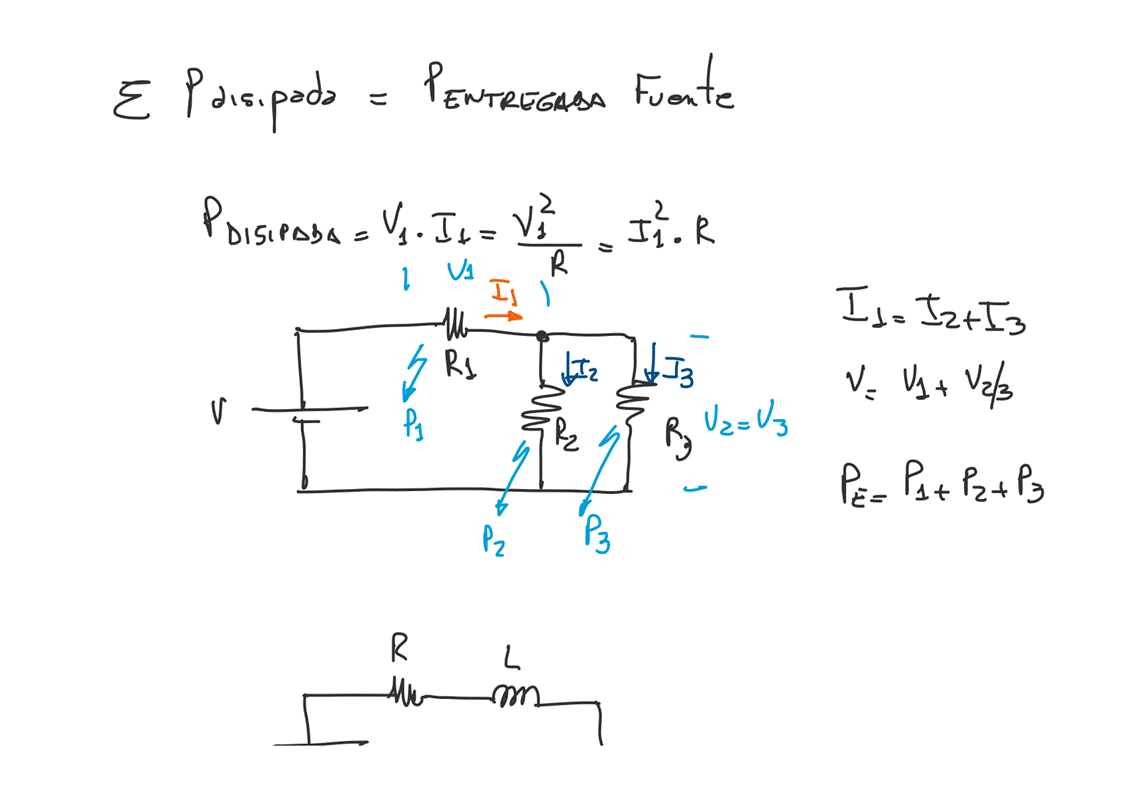 Σ Pdisipada = PENTREGADA Fuente
PDISIPADA = V1 . I1 = V1² / R = I1² . R
V1
I1
R1
P1
V
I2
I3
R2
R3
V2 = V3
P2
P3
I1 = I2 + I3
V = V1 + V2/3
PE = P1 + P2 + P3
R
L